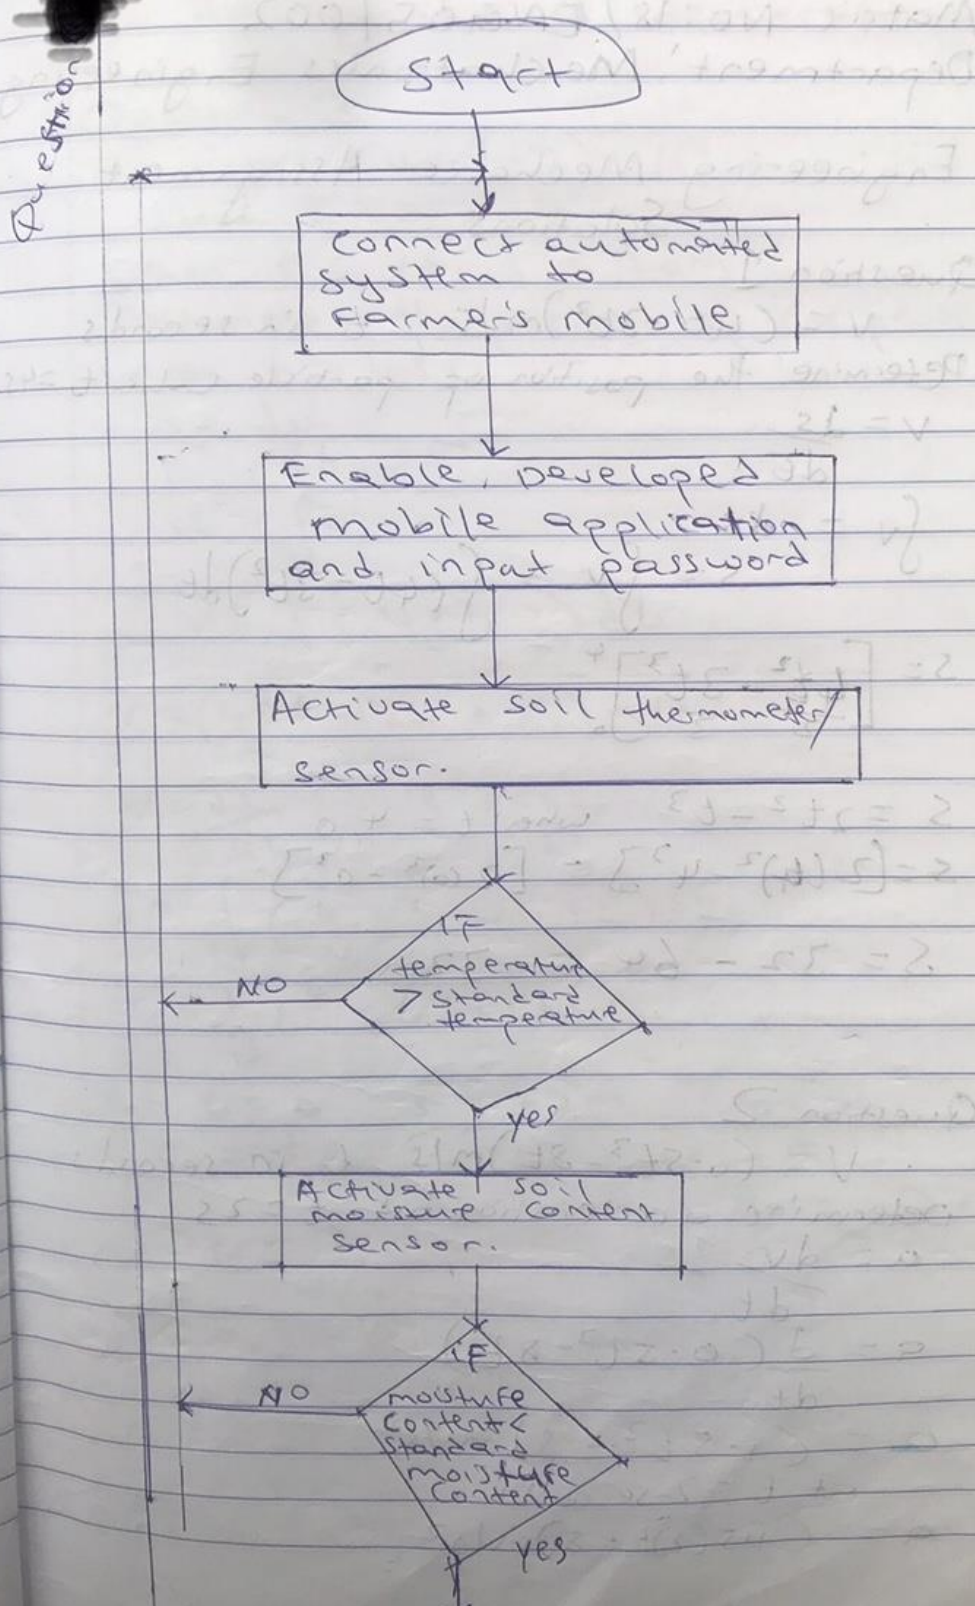 Question
Start
Connect automated
system to
Farmer's mobile
Enable Developed
mobile application
and input password
Activate soil thermometer/
sensor.
IF
temperature
> standard
temperature
NO
yes
Activate soil
moisture content
sensor.
if
moisture
content <
standard
moisture
content
NO
yes